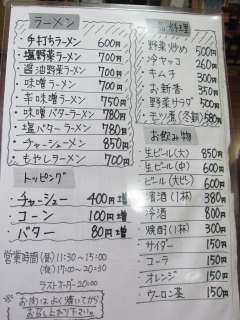 ラーメン
手打ちラーメン 600円
塩野菜ラーメン 700円
醤油野菜ラーメン 700円
味噌ラーメン 700円
辛味噌ラーメン 750円
味噌バターラーメン 780円
塩バターラーメン 780円
チャーシューメン 850円
もやしラーメン 700円
トッピング
チャーシュー 400円増
コーン 100円増
バター 80円増
営業時間(昼)11:30~15:00
(夜)17:00~20:30
ラストオーダー 20:00
※お肉はよく焼いてから
お召し上がり下さい。
一品料理
野菜炒め 500円
冷ヤッコ 260円
キムチ 300円
お新香 350円
野菜サラダ 500円
モツ煮(冬) 580円
お飲み物
生ビール(大) 850円
生ビール(中) 600円
ビール(大ビン) 600円
酒(1杯) 380円
冷酒 800円
焼酎(1杯) 300円
サイダー 150円
コーラ 150円
オレンジ 150円
ウーロン茶 150円